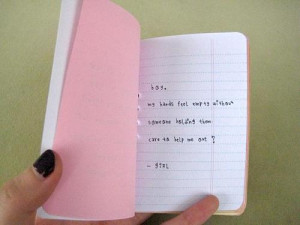 boy,
my hands feel empty without
someone holding them.
care to help me out ?
- girl